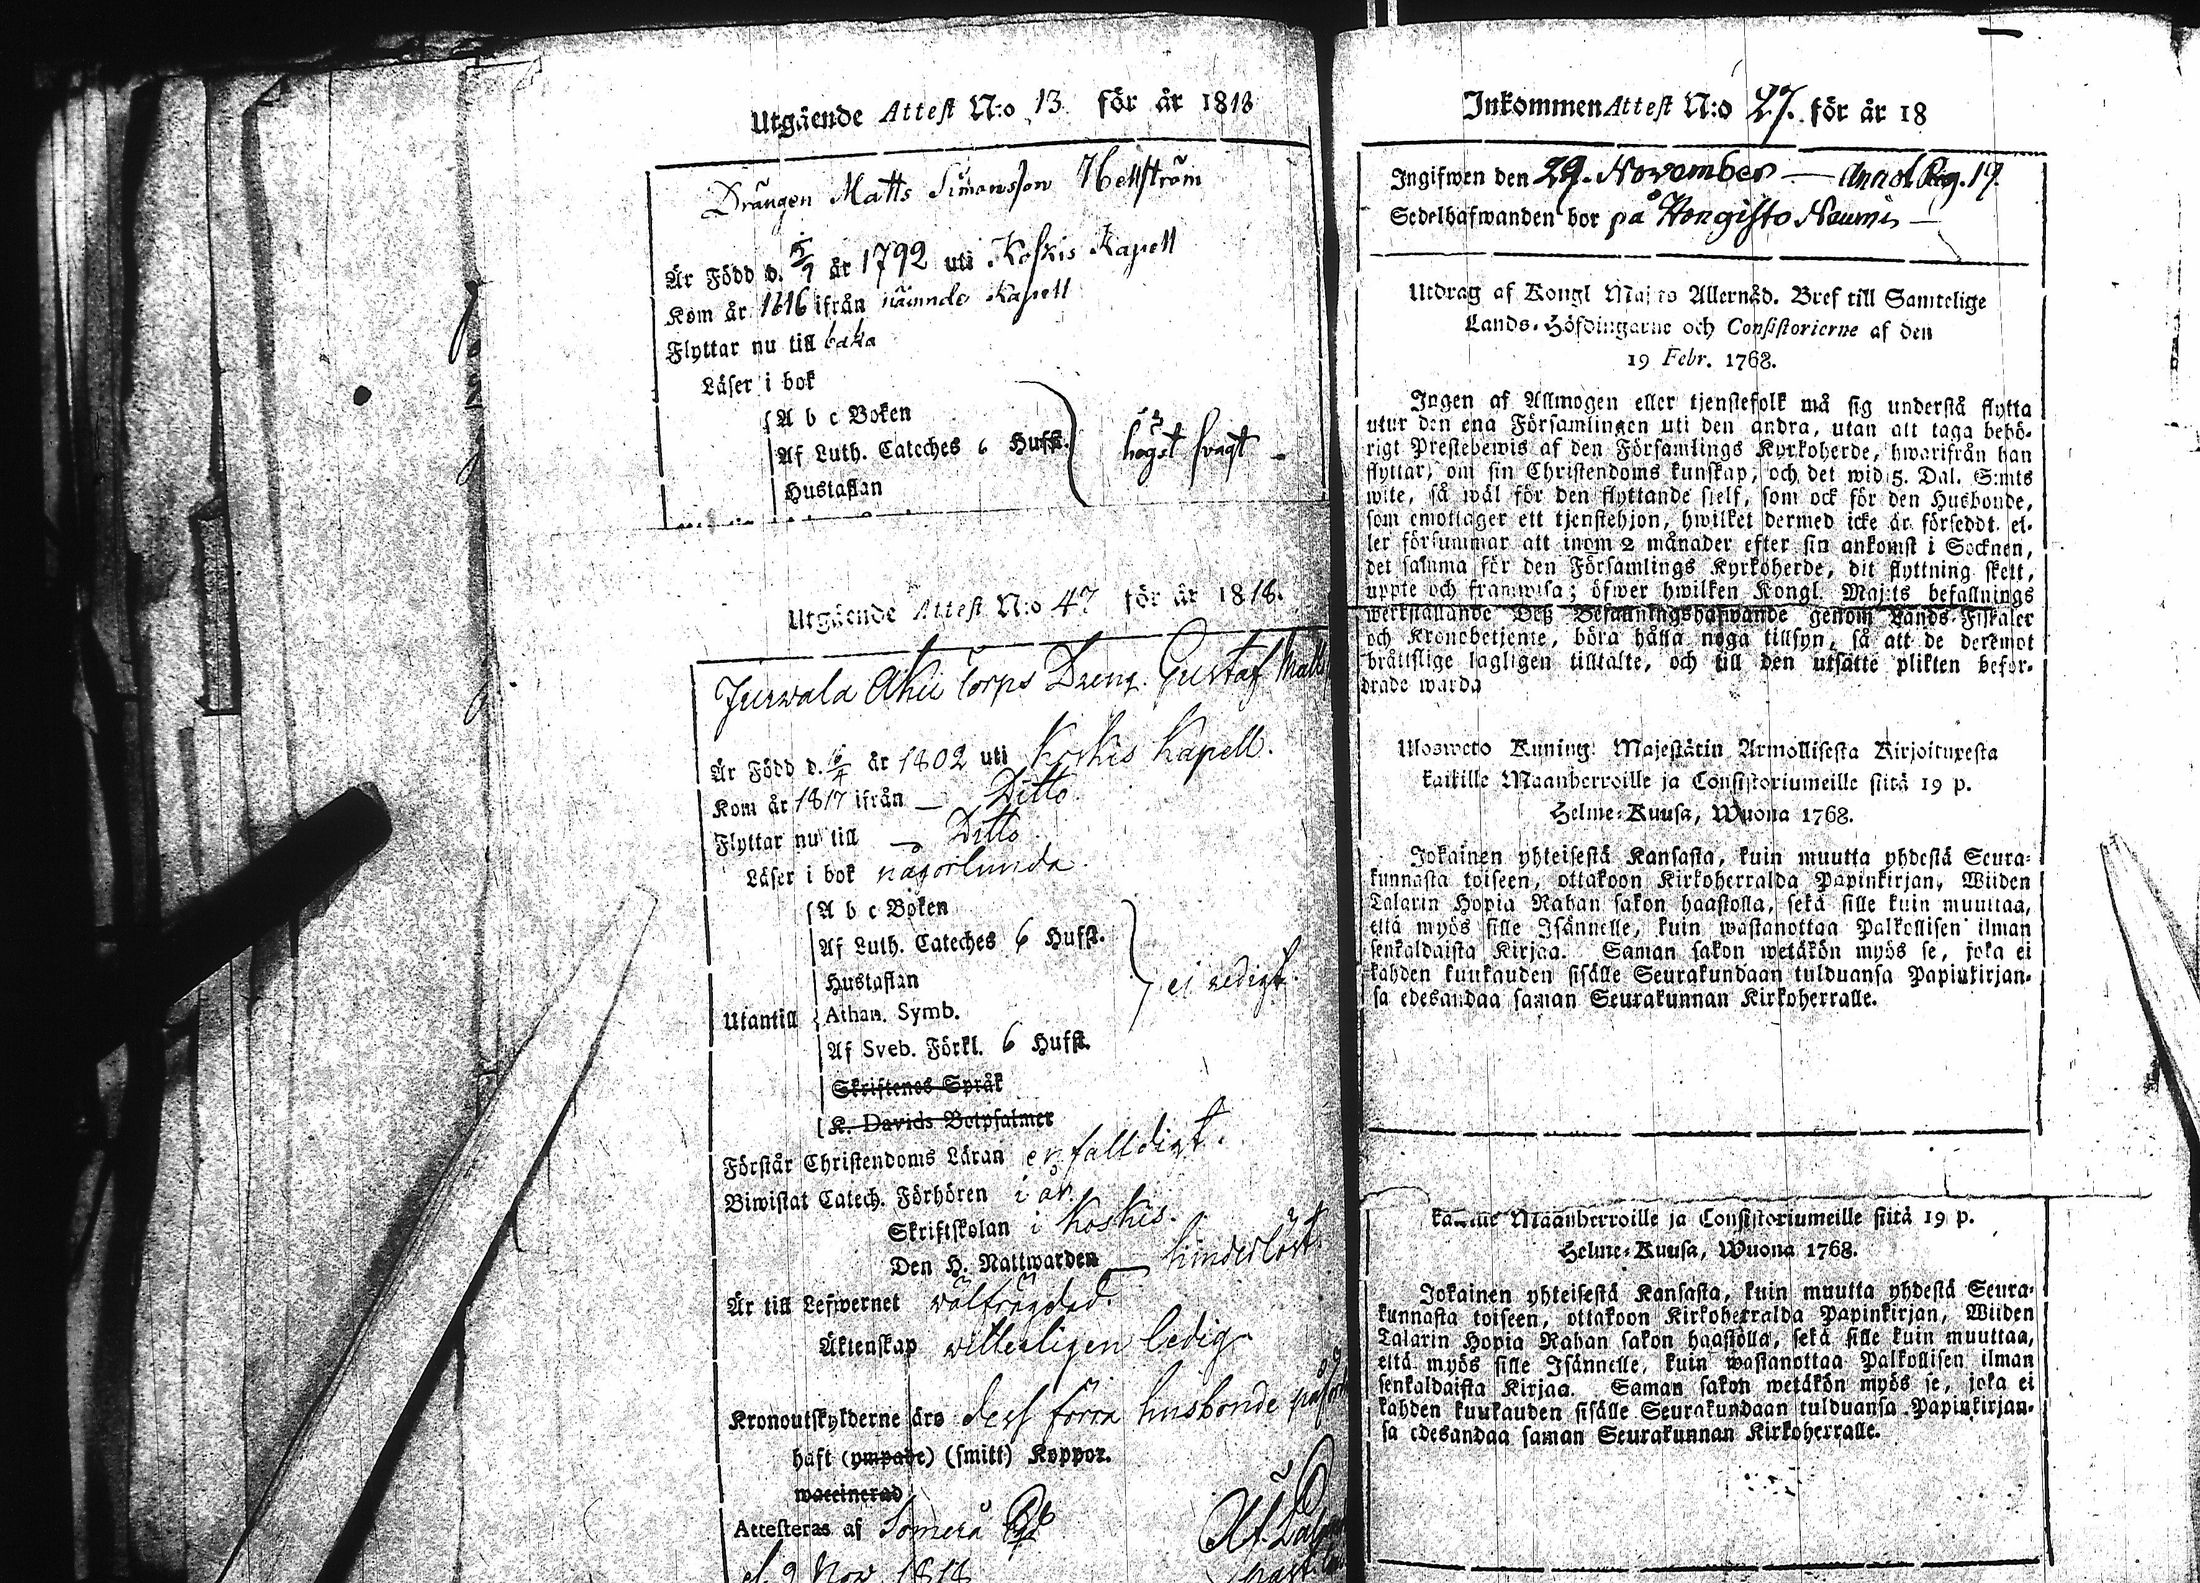 Utgående Attest N:o 13 för år 1818
Drängen Matts Simonsson Hellström
Är Född d. 5/9 år 1792 uti Koskis Kapell
Kom år 1816 ifrån nämnde Kapell
Flyttar nu till baka
Läser i bok
A b c Boken
Af Luth. Cateches 6 Hufst. högst svagt
Hustaflan
Utgående Attest N:o 47 för år 1818.
Juvvala Torps Dreng. Gustaf
Är Född d. år 1802 uti Koskis Kapell.
Kom år 1817 ifrån — Ditto
Flyttar nu till — Ditto.
Läser i bok någorlunda.
A b c Boken
Af Luth. Cateches 6 Hufst.
Hustaflan ei redigt.
Utantill Athan. Symb.
Af Sveb. Förkl. 6 Hufst.
Skriftenes Språk
K. Davids Botpsalmer
Förstår Christendoms Läran enfalldigt.
Biwistat Catech. Förhören i år.
Skriftskolan i Koskis.
Den H. Nattwarden — hinderlöst.
Är till Lefwernet wälfrägdad.
Äktenskap vitterligen ledig
Kronoutskylderne äro dess förra husbonde
haft (ympade) (smitt) Koppor.
waccinerad
Attesteras af Somero
d. 9 Nov. 1818
Inkommen Attest N:o 27. för år 18
Ingifwen den 29. November — Annot. Reg. 19.
Sedelhafwanden bor på Hongisto Naumis —
Utdrag af Kongl Maj:ts Allernåd. Bref till Samtelige
Lands-Höfdingarne och Consistorierne af den
19 Febr. 1768.
Ingen af Allmogen eller tjenstefolk må sig understå flytta
utur den ena Församlingen uti den andra, utan att taga behö-
rigt Prestebewis af den Församlings Kyrkoherde, hwarifrån han
flyttar, om sin Christendoms kunskap, och det wid 5. Dal. S:mts
wite, så wäl för den flyttande sjelf, som ock för den Husbonde,
som emottager ett tjenstehjon, hwilket dermed icke är försedt, el-
ler försummar att inom 2 månader efter sin ankomst i Socknen,
det samma för den Församlings Kyrkoherde, dit flyttning skett,
uppte och framwisa; öfwer hwilken Kongl. Maj:ts befallnings
werkställande Deß Befallningshafwande genom Lands-Fiskaler
och Kronobetjente, böra hålla noga tillsyn, så att de deremot
bråttslige lagligen tilltalte, och till den utsatte plikten befor-
drade warda
Ulosweto Kuning: Majestätin Armollisesta Kirjoituxesta
kaikille Maanherroille ja Consistoriumeille siitä 19 p.
Helme-Kuusa, Wuona 1768.
Jokainen yhteisestä Kansasta, kuin muutta yhdestä Seura-
kunnasta toiseen, ottakoon Kirkoherralda Papinkirjan, Wiiden
Talarin Hopia Rahan sakon haastolla, sekä sille kuin muuttaa,
että myös sille Isännelle, kuin wastanottaa Palkollisen ilman
senkaldaista Kirjaa. Saman sakon wetäkön myös se, joka ei
kahden kuukauden sisälle Seurakundaan tulduansa Papinkirjan-
sa edesandaa saman Seurakunnan Kirkoherralle.
kaikille Maanherroille ja Consistoriumeille siitä 19 p.
Helme-Kuusa, Wuona 1768.
Jokainen yhteisestä Kansasta, kuin muutta yhdestä Seura-
kunnasta toiseen, ottakoon Kirkoherralda Papinkirjan, Wiiden
Talarin Hopia Rahan sakon haastolla, sekä sille kuin muuttaa,
että myös sille Isännelle, kuin wastanottaa Palkollisen ilman
senkaldaista Kirjaa. Saman sakon wetäkön myös se, joka ei
kahden kuukauden sisälle Seurakundaan tulduansa Papinkirjan-
sa edesandaa saman Seurakunnan Kirkoherralle.